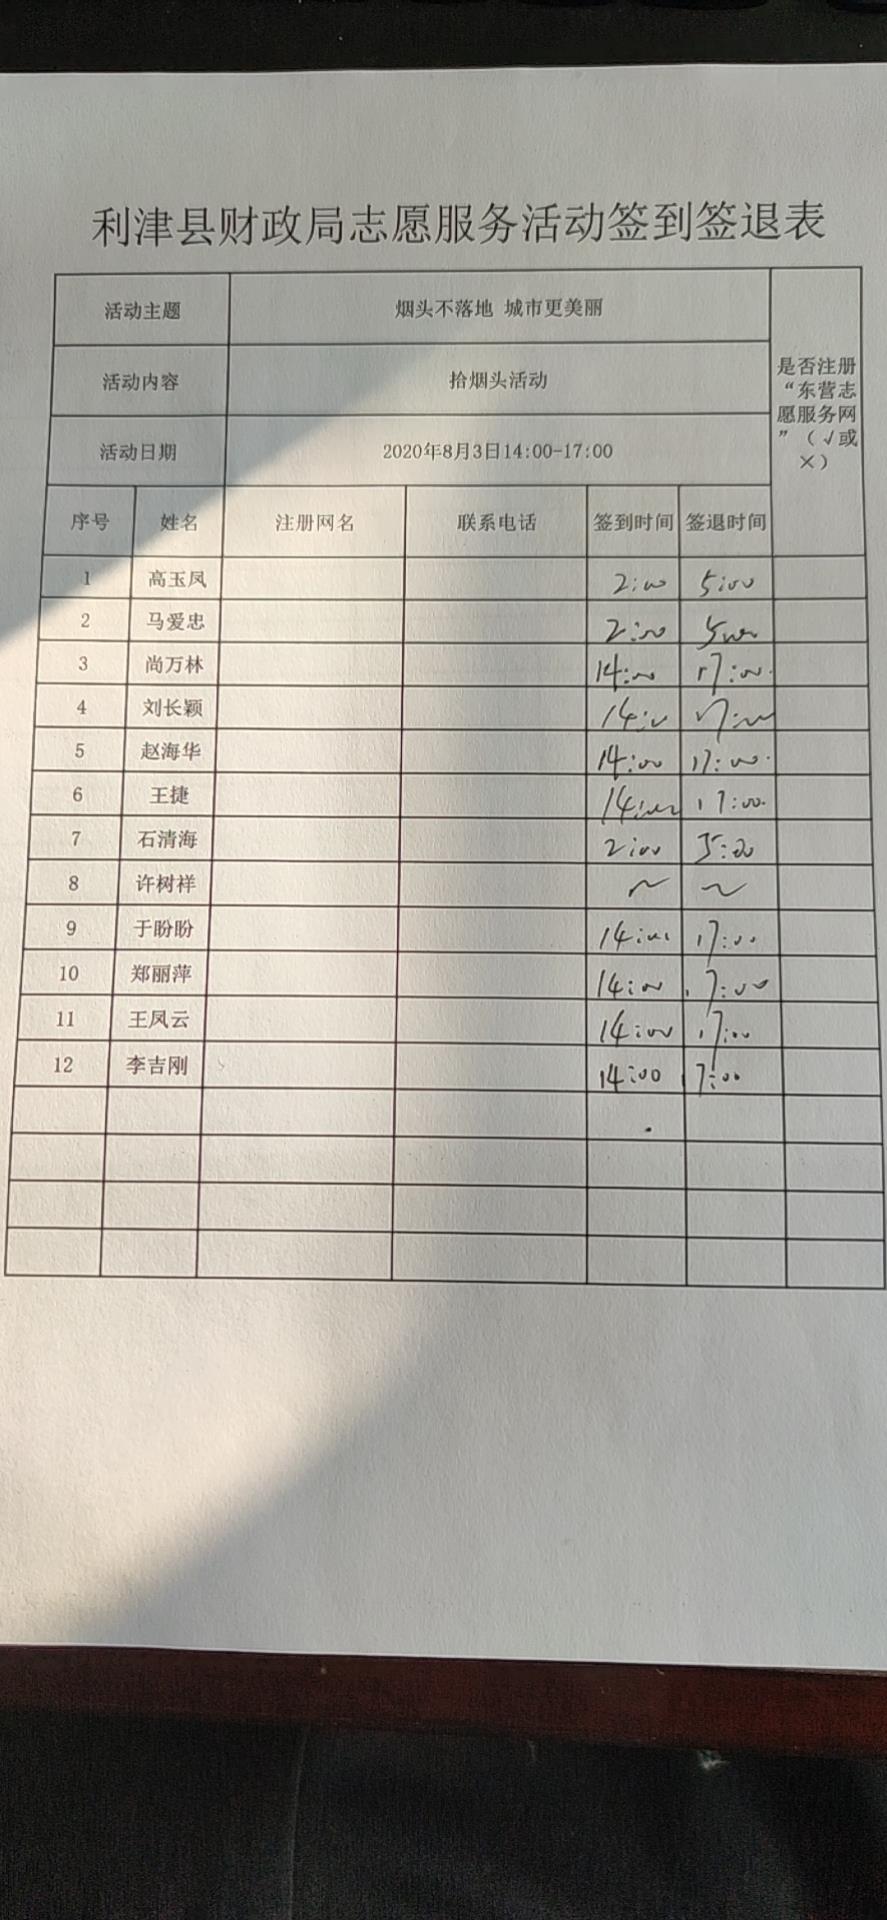 利津县财政局志愿服务活动签到签退表
活动主题 烟头不落地 城市更美丽
活动内容 拾烟头活动
活动日期 2020年8月3日14:00-17:00
是否注册
“东营志
愿服务网
”（√或
×）
序号 姓名 注册网名 联系电话 签到时间 签退时间
1 高玉凤 2:00 5:00
2 马爱忠 2:00 5:00
3 尚万林 14:00 17:00
4 刘长颖 14:00 17:00
5 赵海华 14:00 17:00
6 王捷 14:00 17:00
7 石清海 2:00 5:00
8 许树祥 ~ ~
9 于盼盼 14:00 17:00
10 郑丽萍 14:00 17:00
11 王凤云 14:00 17:00
12 李吉刚 14:00 17:00